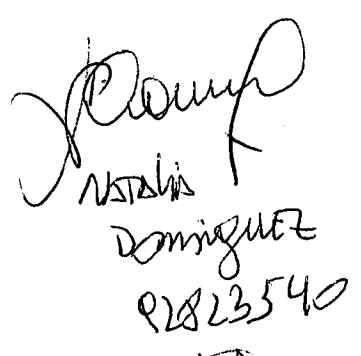 NATALIA
DOMINGUEZ
92823540